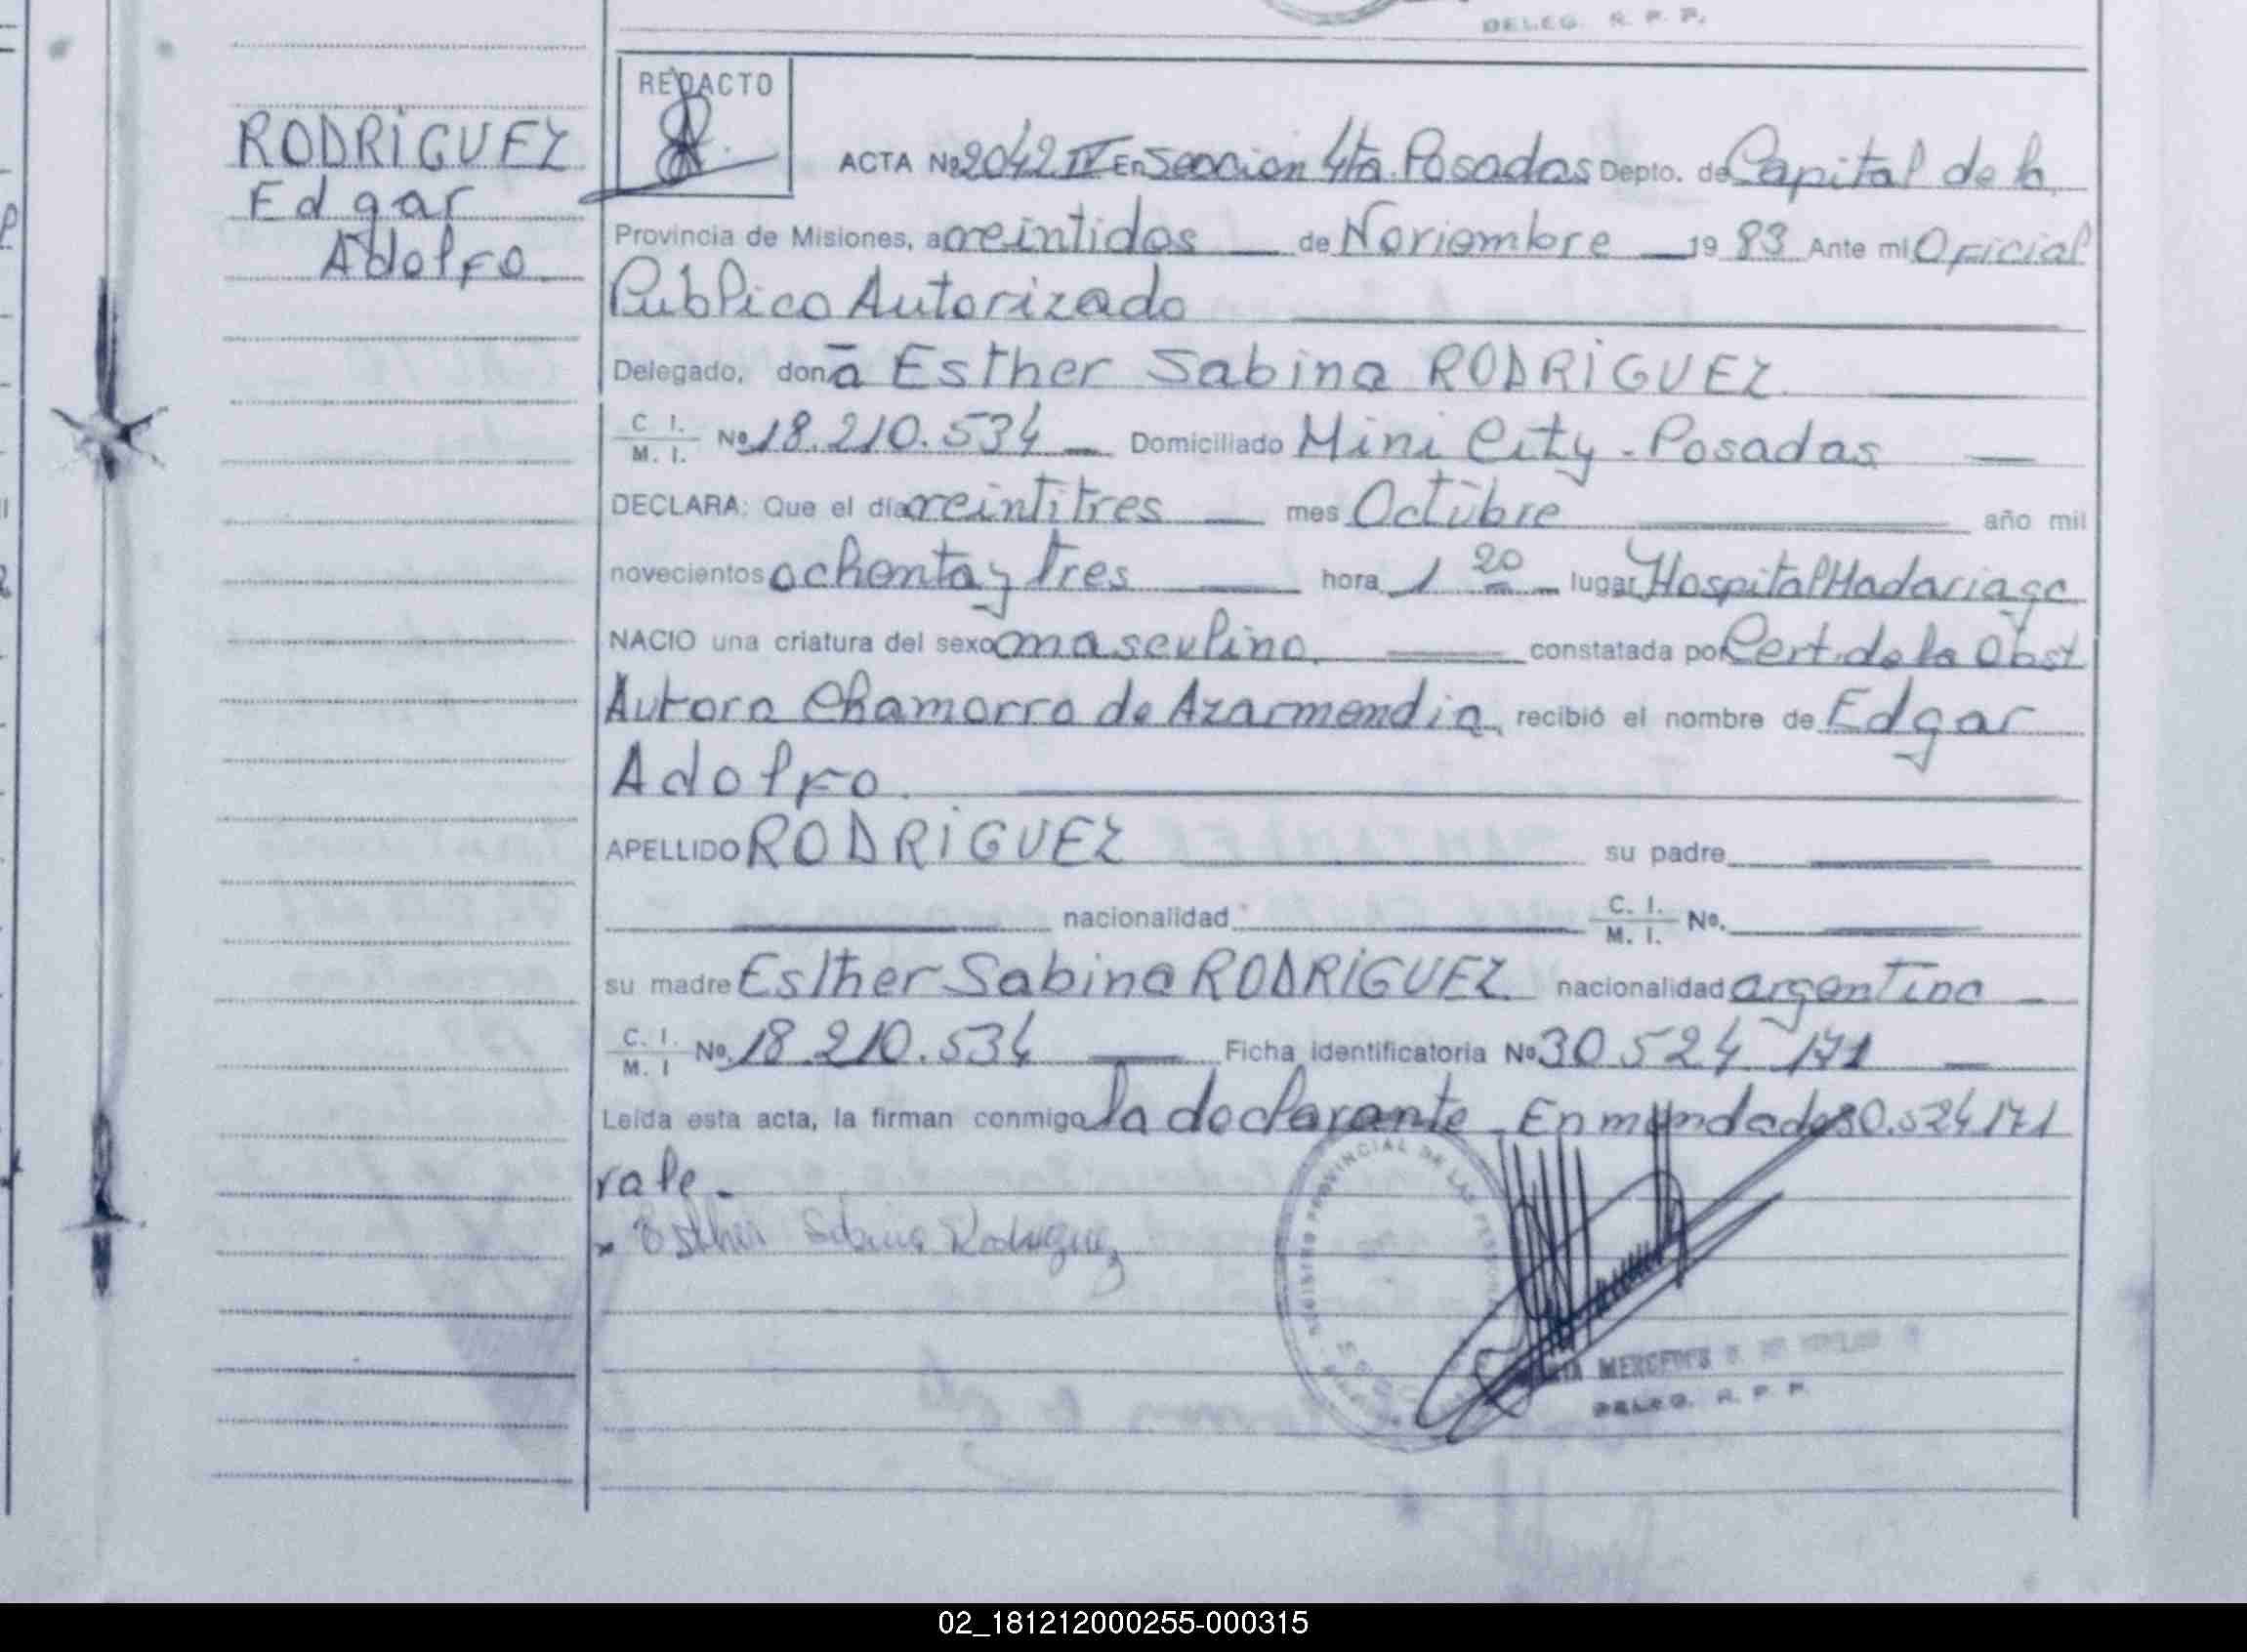 DELEG. R. P. P.
REDACTO
RODRIGUEZ
Edgar
Adolfo
ACTA Nº 2042 IV En Seccion 4ta. Posadas Depto. de Capital de la
Provincia de Misiones, a veintidos de Noviembre 1983 Ante mi Oficial
Publico Autorizado
Delegado, don a Esther Sabina RODRIGUEZ
C. I. M. I. Nº 18.210.534 Domiciliado Mini City - Posadas
DECLARA: Que el día veintitres mes Octubre año mil
novecientos ochenta y tres hora 1 20 lugar Hospital Madariaga
NACIO una criatura del sexo masculino. constatada por Cert. de la Obst
Aurora Chamorro de Azarmendia recibió el nombre de Edgar
Adolfo.
APELLIDO RODRIGUEZ su padre
nacionalidad C. I. M. I. Nº.
su madre Esther Sabina RODRIGUEZ nacionalidad argentina
C. I. M. I Nº. 18.210.534 Ficha identificatoria Nº 30.524 171
Leída esta acta, la firman conmigo la declarante. Enmendado 30.524.171
vale.
x Esther Sabina Rodriguez
PROVINCIAL DE LAS
MERCEDES
DELEG. R. P. P.
02_181212000255-000315